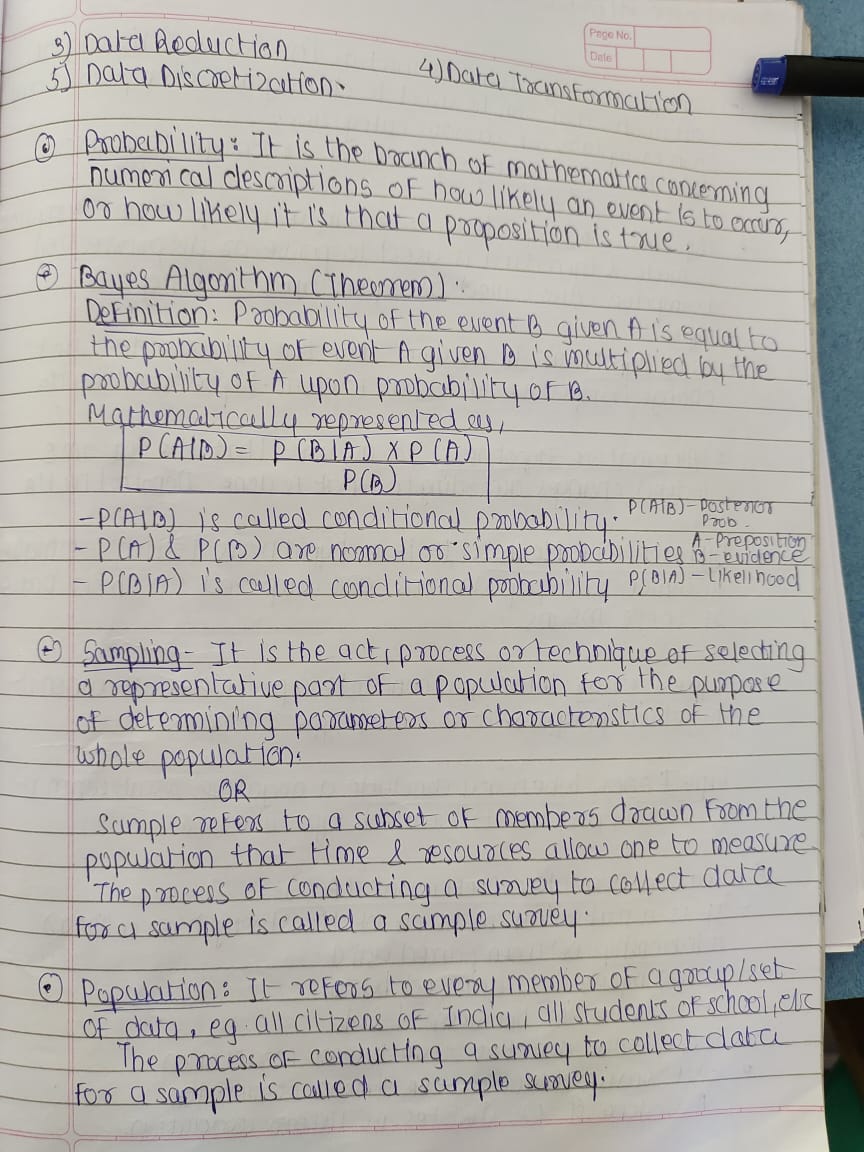 Page No.
Date
3) Data Reduction
4) Data Transformation
5) Data Discretization.
Probability: It is the branch of mathematics concerning
numerical descriptions of how likely an event is to occur,
or how likely it is that a proposition is true.
Bayes Algorithm (Theorem).
Definition: Probability of the event B given A is equal to
the probability of event A given B is multiplied by the
probability of A upon probability of B.
Mathematically represented as,
P(A|B) = P(B|A) X P(A)
P(B)
- P(A|B) is called conditional probability. P(A|B) - Posterior
Prob.
- P(A) & P(B) are normal or simple probabilities A - Preposition
B - evidence
- P(B|A) is called conditional probability P(B|A) - Likelihood
Sampling - It is the act, process or technique of selecting
a representative part of a population for the purpose
of determining parameters or characteristics of the
whole population.
OR
Sample refers to a subset of members drawn from the
population that time & resources allow one to measure.
The process of conducting a survey to collect data
for a sample is called a sample survey.
Population: It refers to every member of a group/set
of data, eg. all citizens of India, all students of school, etc
The process of conducting a survey to collect data
for a sample is called a sample survey.